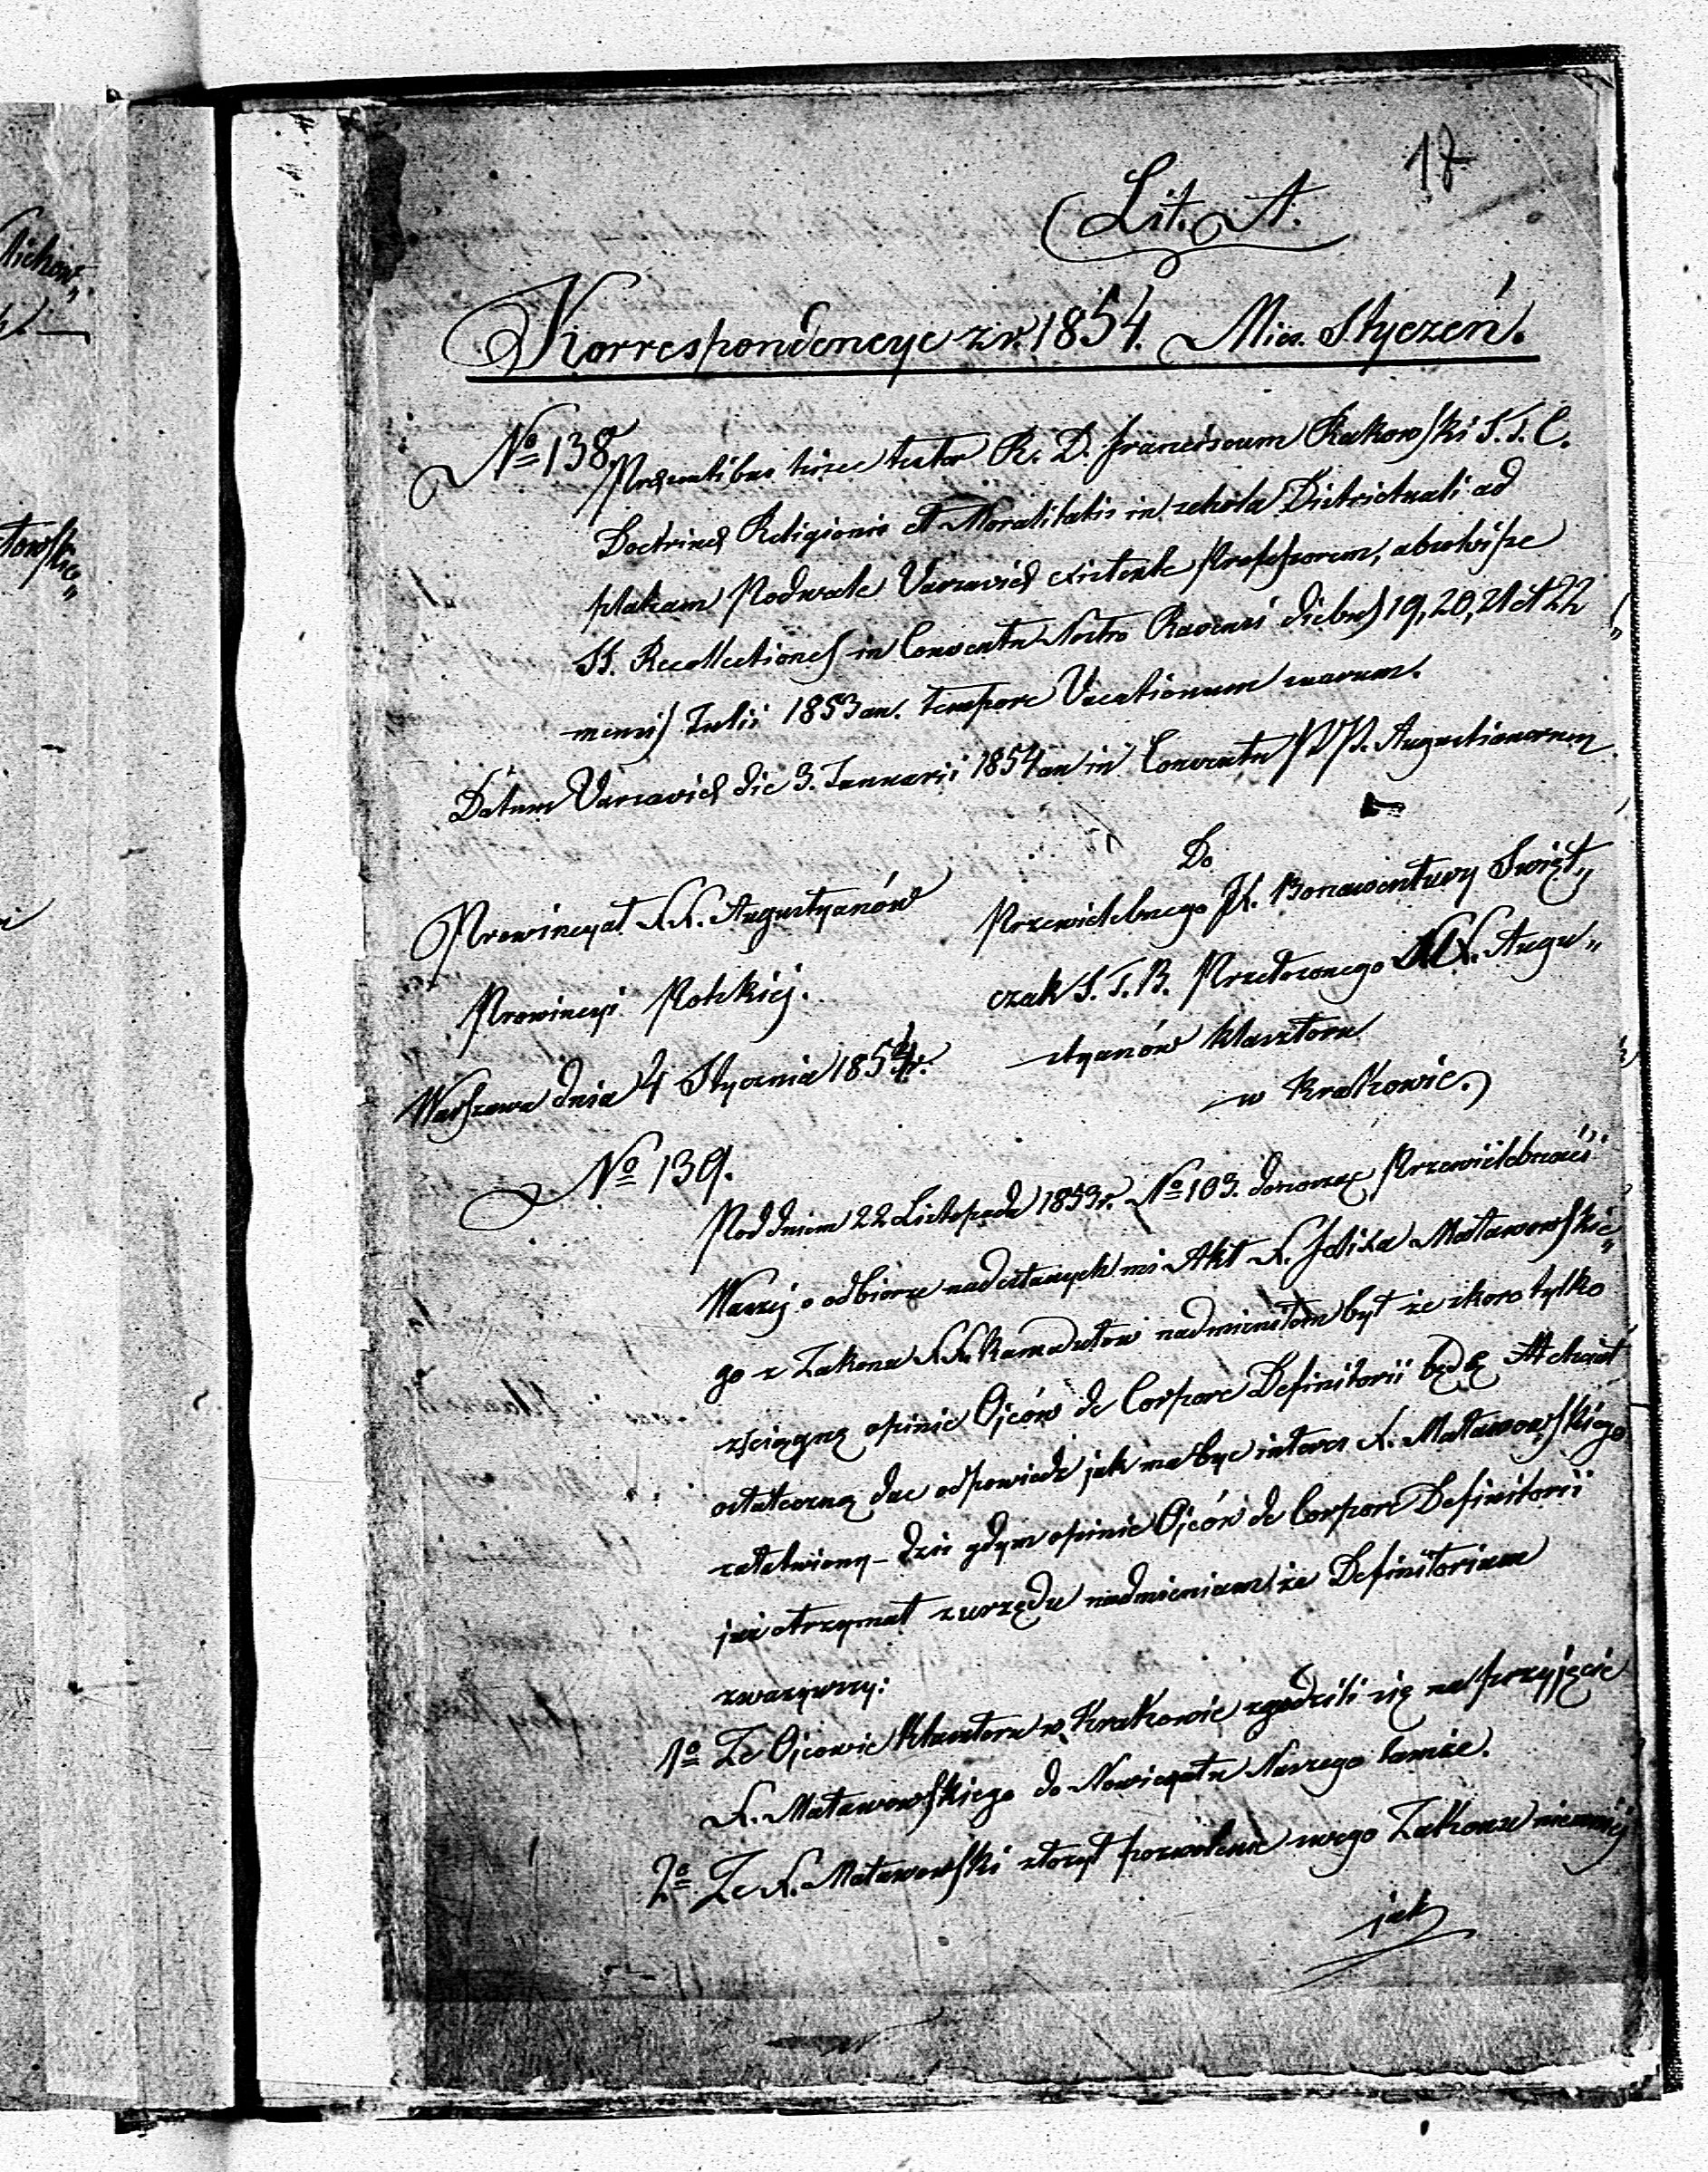 18
Lit. A.
Korrespondencye z r. 1854. Mies. Styczeń.
No 138. Præsentibus hisce testor R. D. Franciscum Rakowski S. T. C.
Doctrinæ Religionis et Moralitatis in schola Districtuali ad
plateam Podwale Varsaviæ existente Professorem, absolvisse
SS. Recollectiones in Conventu Nostro Ravensi diebus 19, 20, 21 et 22
mensis Julii 1853 an. tempore Vacationum suarum.
Datum Varsaviæ die 3. Januarii 1854 an in Conventu PP. Augustianorum
Prowincyał XX. Augustyanów
Prowincyi Polskiej.
Warszawa dnia 4 Stycznia 1854 r.
Do
Przewielebnego JX. Bonawentury Swięt„
czak S. T. B. Przełożonego XX. Augu„
styanów Klasztoru
w Krakowie.
No 139.
Pod dniem 22 Listopada 1853 r. No 103. donosząc Przewielebności
Waszej o odbiorze nadesłanych mi Akt X. Felixa Matawowskie„
go z Zakonu XX. Kamedułów nadmieniłem był że skoro tylko
zściągnę opinie Ojców de Corpore Definitorii będę
ostateczną dać odpowiedź jak ma być interes X. Matawowskiego
załatwiony – dziś gdym opinie Ojców de Corpore Definitorii
już otrzymał z urzędu nadmieniam że Definitorium
zważywszy:
1o Że Ojcowie Klasztoru w Krakowie zgodzili się na przyjęcie
X. Matawowskiego do Nowicyatu Naszego tamże.
2o Że X. Matawowski złożył pozwolenie swego Zakonu niemniej
jak